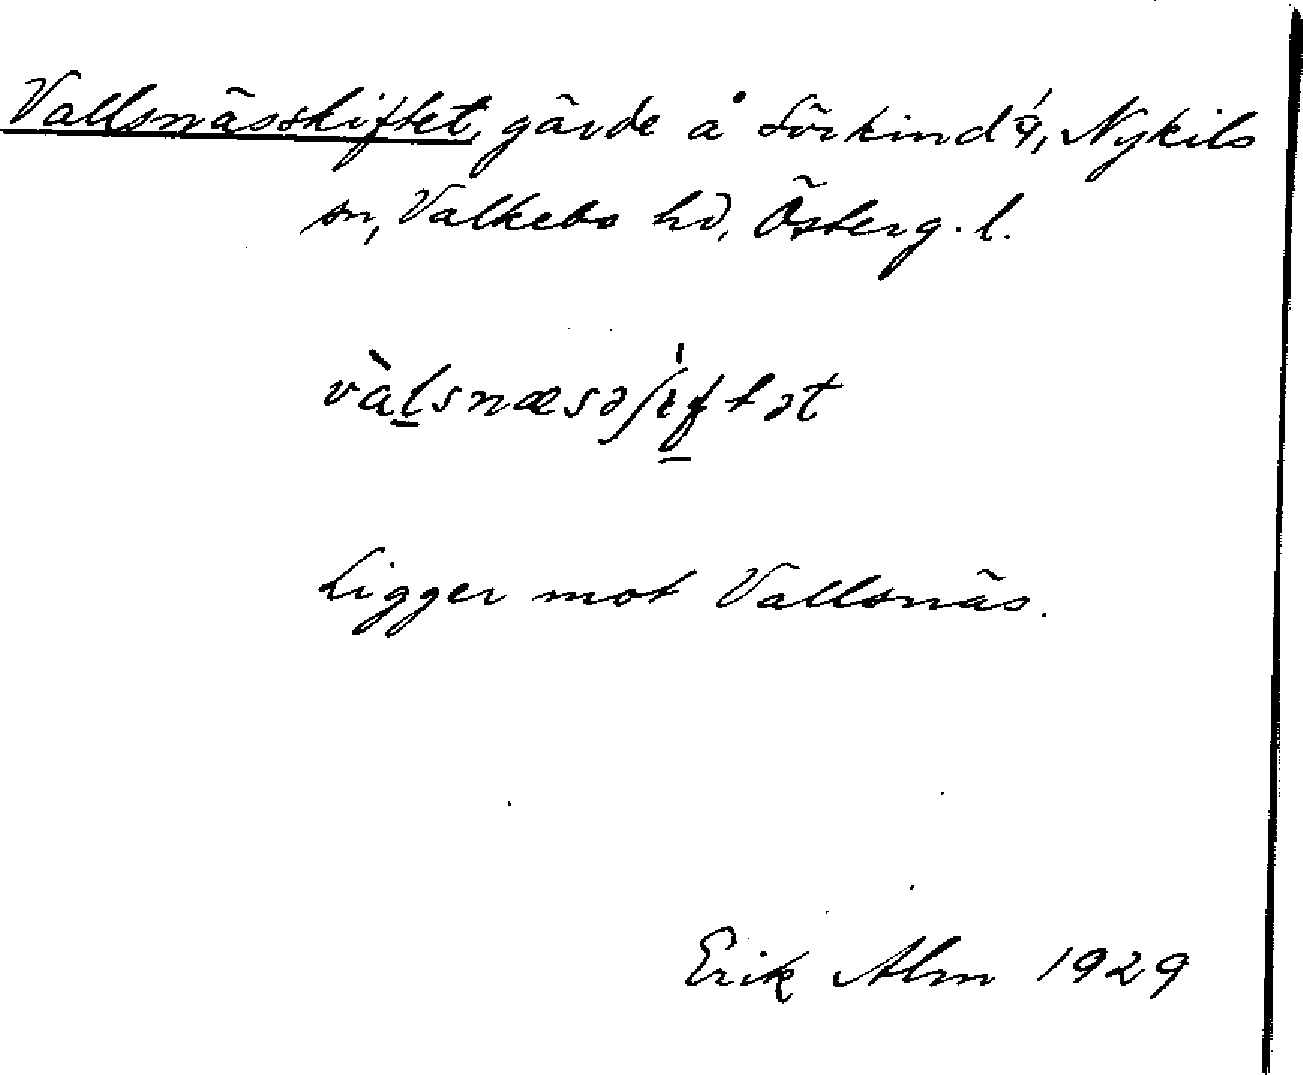 Vallsnässkiftet, gärde å Sörkind 1/4, Nykils
sn, Valkebo hd, Österg. l.
vàlsnæsəʃiftət
Ligger mot Vallsnäs.
Erik Alm 1929